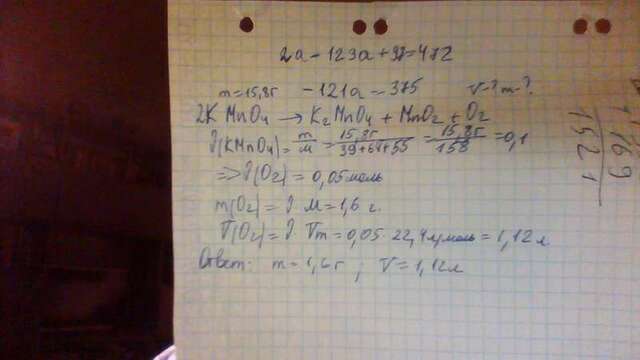 2a - 123a + 97 = 472
m = 15,8г - 121a = 375 V - ? m - ?
2KMnO4 → K2MnO4 + MnO2 + O2
ν(KMnO4) = m/M = 15,8г/39+64+55 = 15,8г/158 = 0,1
=> ν(O2) = 0,05 моль
m(O2) = ν · M = 1,6 г.
V(O2) = ν · Vm = 0,05 · 22,4 л/моль = 1,12 л
Ответ: m = 1,6 г ; V = 1,12 л
169
1521